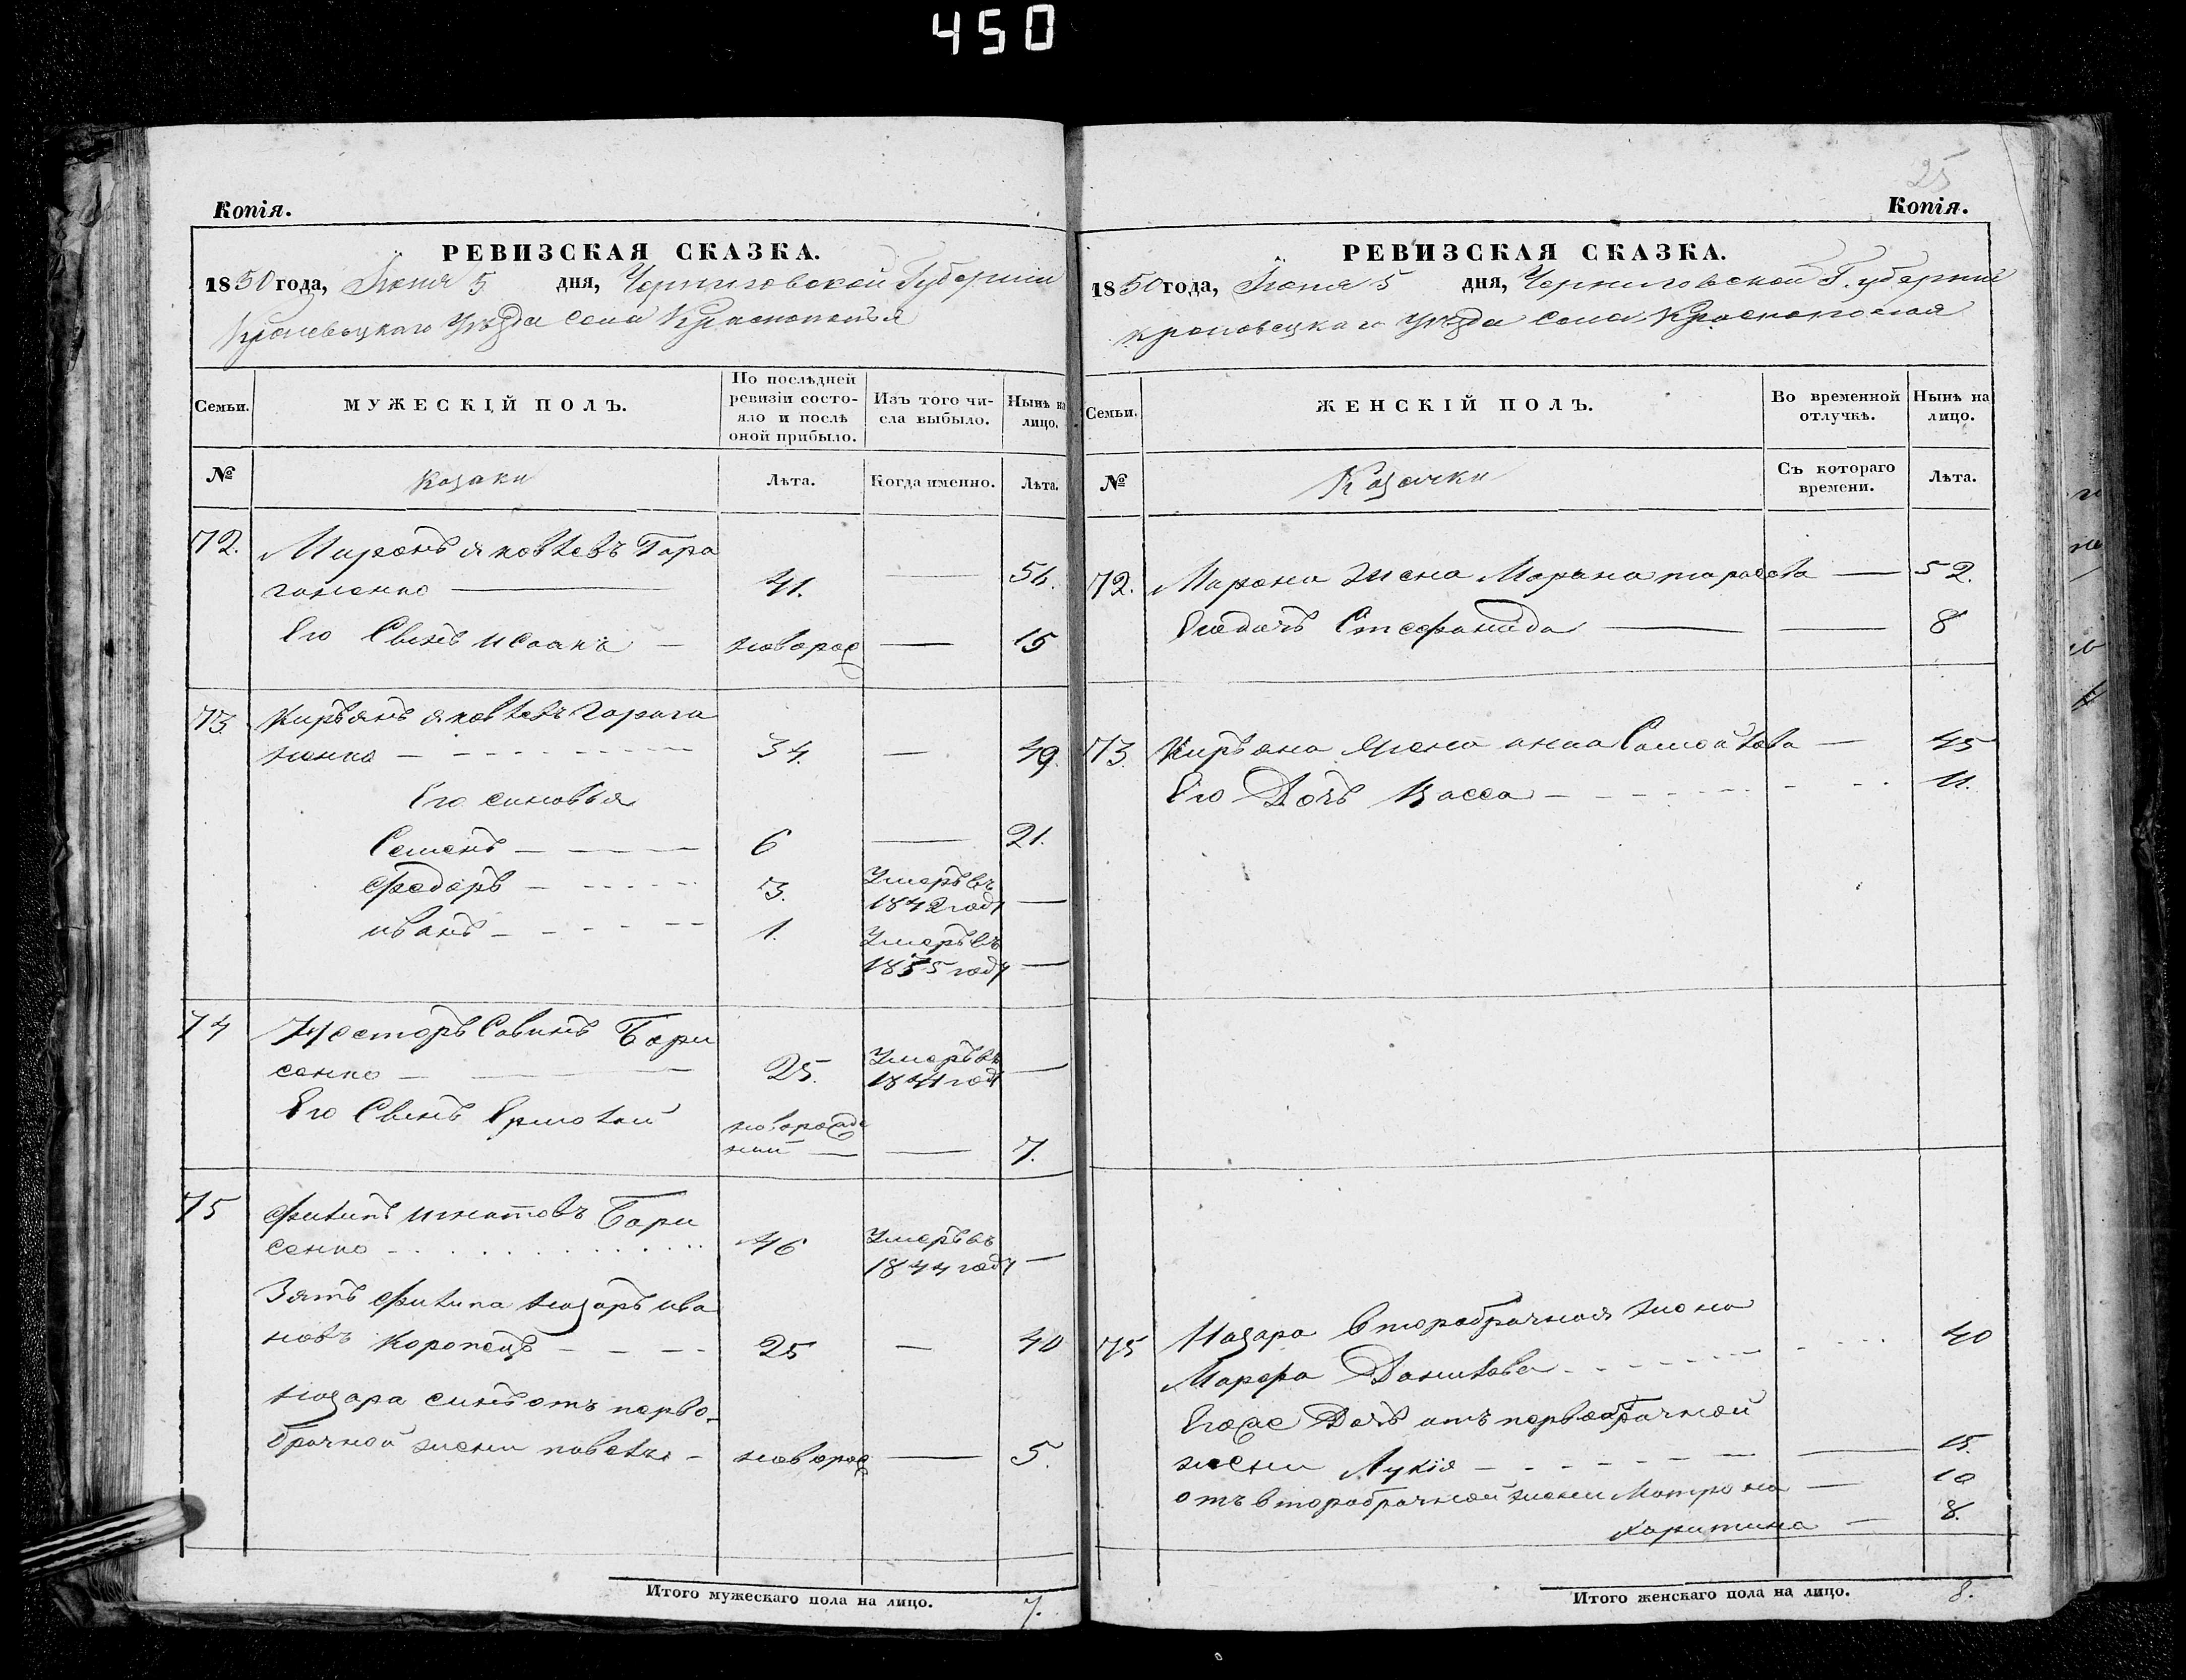 450
Копія.
РЕВИЗСКАЯ СКАЗКА.
1850 года, Іюня 5 дня, Черниговской Губерніи
Кролевецкаго Уѣзда села Краснополья
Семьи.
МУЖЕСКІЙ ПОЛЪ.
По послѣдней ревизіи состо-
яло и послѣ оной прибыло.
Изъ того чи-
сла выбыло.
Нынѣ на лицо.
№
Козаки
Лѣта.
Когда именно.
Лѣта.
72. Миронъ яковлевъ Гара
гоненко 41. 56.
Его Сынъ исаакъ новорож 15
73. Киръянъ яковлевъ гарага
ненко 34. 49.
Его синовья
Семенъ 6 21.
Федоръ 3. Умеръ въ
1842 году
иванъ 1. Умеръ въ
1835 году
74 Несторъ Савинъ Бори
сенко 25. Умеръ въ
1841 год
Его Сынъ Ермолай новорожде
ний 7.
75 Филипъ игнатовъ Бори
сенко 46 Умеръ въ
1844 году
Зять Филипа Назаръ ива
новъ Коропецъ 25 40
Назара синъ отъ перво-
брачной жени павелъ новорож 5.
Итого мужескаго пола на лицо. 7.
25
Копія.
РЕВИЗСКАЯ СКАЗКА.
1850 года, Іюня 5 дня, Черниговской Губерніи
кролевецкаго уѣзда села Краснополья
Семьи.
ЖЕНСКІЙ ПОЛЪ.
Во временной
отлучкѣ.
Нынѣ на
лицо.
№
Козачки
Съ котораго
времени.
Лѣта.
72. Мирона жена Марина тарасова 52.
Егодочь Стефанида 8
73. Киръяна жена анна Самойлова 45
Его Дочь Васса 11.
75 Назара второбрачная жена
Марфа Данилова 40
Егоже Дочь отъ первобрачной
жени Лукія 15.
отъ второбрачной жени Матрона 10
Харитина 8.
Итого женскаго пола на лицо. 8.